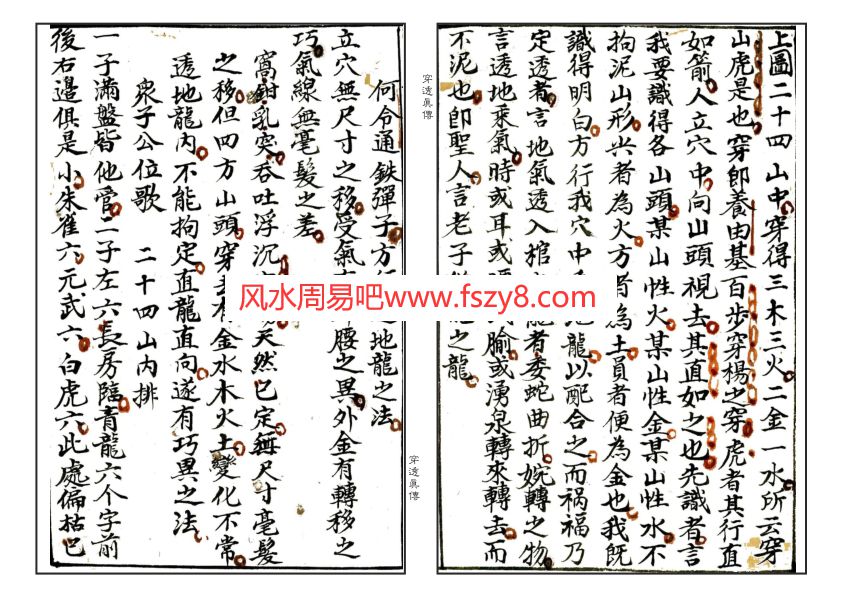 上圖二十四山中穿得三木三火二金一水所云穿
山虎是也穿即養由基百步穿楊之穿虎者其行直
如箭人立穴中向山頭視去其直如之也先識者言
我要識得各山頭某山性火某山性金某山性水不
拘泥山形尖者為火方者為土員者便為金也我既
識得明白方行我穴中地龍以配合之而禍福乃
定透者言地氣透入棺龍者委蛇曲折婉轉之物
言透地乘氣時或耳或腰腧或湧泉轉來轉去而
不泥也即聖人言老子之龍
穿透眞傳
穿透眞傳
何令通鉄彈子方地龍之法
立穴無尺寸之移受氣腰之異外金有轉移之
巧氣線無毫髮之差
窩鉗乳突吞吐浮沉天然已定無尺寸毫髮
之移但四方山頭穿有金水木火土變化不常
透地龍內不能拘定直龍直向遂有巧異之法
衆子公位歌 二十四山內排
一子滿盤皆他管二子左六長房臨青龍六个字前
後右邊俱是小朱雀六元武六白虎六此處偏枯已
风水周易吧www.fszy8.com